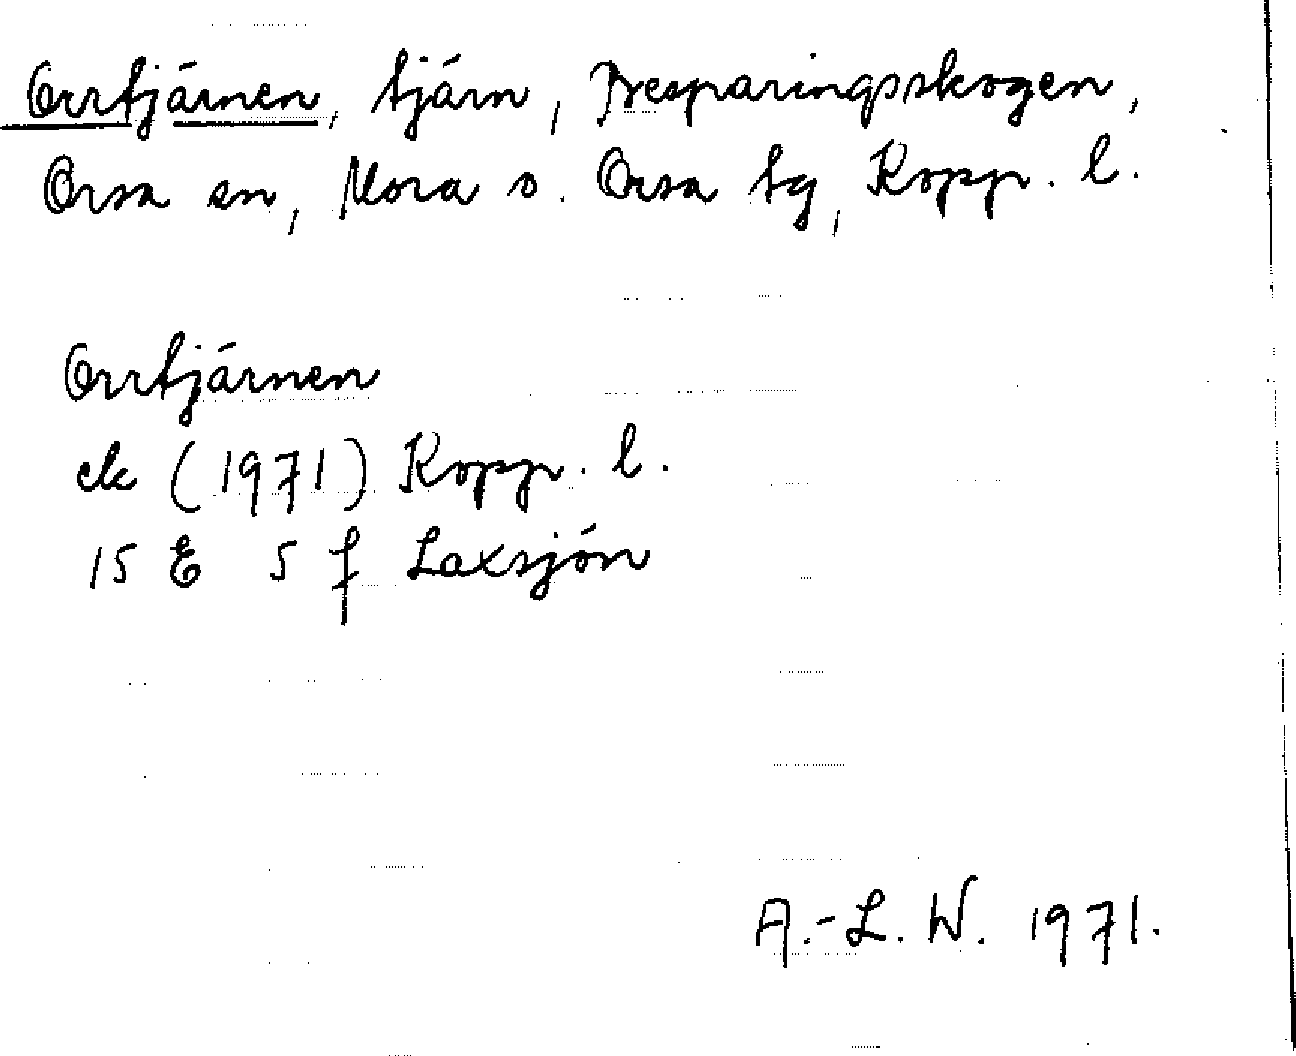 Orrtjärnen, tjärn, Besparingsskogen,
Orsa sn, Mora o. Orsa tg, Kopp. l.
Orrtjärnen
ek (1971) Kopp. l.
15 E 5 f Laxsjön
A.-L. W. 1971.